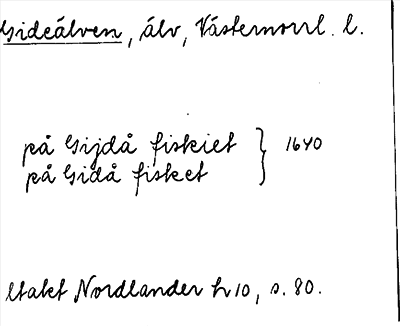 Gideälven, älv, Västernorrl. l.
på Gijdå fiskiet } 1640
på Gidå fisket
Utakt Nordlander h 10, s. 80.